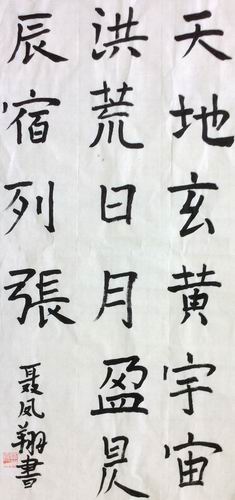 天地玄黄宇宙
洪荒日月盈昃
辰宿列張
聂凤翔書